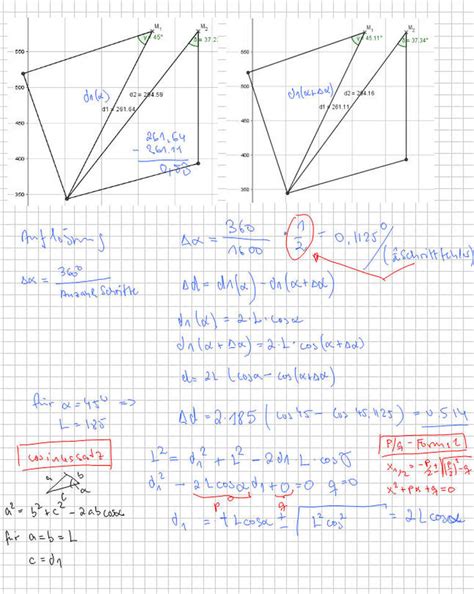 M₁ M₂
45° 37.2
550
500
450
400
350
d1(α)
d2 = 264.59
d1 = 261.64
261,64
- 261.11
0,53
M₁ M₂
45.11° 37.34°
550
500
450
400
350
d1(α+Δα)
d2 = 264.16
d1 = 261.11
Auflösung
Δα = 360° / Anzahl Schritte
Δα = 360 / 1600 · 1/2 = 0,1125° / (≙ Schrittfehler)
Δd = d1(α) - d1(α+Δα)
d1(α) = 2·L·cosα
d1(α+Δα) = 2·L·cos(α+Δα)
d = 2L (cosα - cos(α+Δα)
für α = 45° =>
L = 185
Δd = 2·185 (cos 45 - cos 45,1125) = 0,514
Cosinussatz
a b c α
a² = b² + c² - 2ab cosα
für a = b = L
c = d1
L² = d₁² + L² - 2d1 L · cos
d₁² - 2L cosα d1 + 0 = 0 q = 0
p q
d₁ = + L cosα ± √L² cos² = 2L cosα
P/q - Formel
x₁/₂ = -p/2 ± √(p/2)² - q
x² + px + q = 0